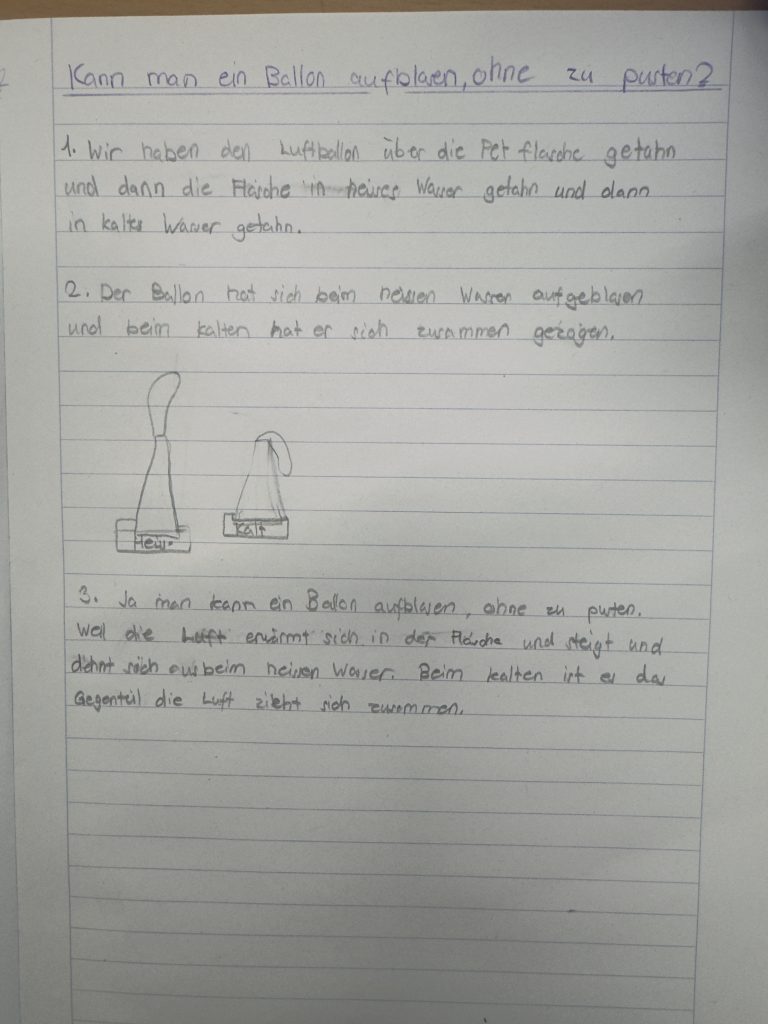 Kann man ein Ballon aufblasen, ohne zu pusten?
1. Wir haben den Luftballon über die Pet flasche getahn
und dann die Flasche in heises Wasser getahn und dann
in kaltes Wasser getahn.
2. Der Ballon hat sich beim heissen Wasser aufgeblasen
und beim kalten hat er sich zusammen gezogen.
Heiss
Kalt
3. Ja man kann ein Ballon aufblasen, ohne zu pusten.
Weil die Luft erwärmt sich in der Flasche und steigt und
dehnt sich aus beim heissen Wasser. Beim kalten ist es das
Gegenteil die Luft zieht sich zusammen.